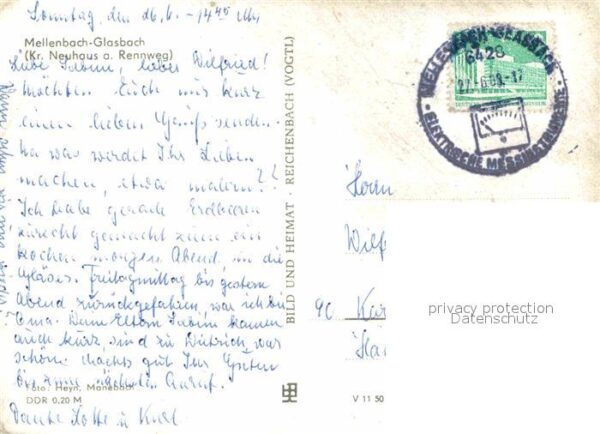 Sonntag, den 26.6. - 14⁴⁵ Uhr
Mellenbach-Glasbach
(Kr. Neuhaus a. Rennweg)
Liebe Sabine, lieber Wilfried!
Möchten Euch nur kurz
einen lieben Gruß senden.
Na was werdet Ihr Lieben
machen, etwa malern??
Ich habe gerade Erdbeeren
zurecht gemacht zum ein
kochen morgen Abend, in die
Gläser. Freitagmittag bis gestern
Abend zurückgefahren, war ich bei
Oma. Deine Eltern Sabine kamen
auch kurz, sind zu Dietrich, war
schön. Machts gut Ihr Guten
bis zum nächsten Anruf.
Foto: Heyn, Manebach
DDR 0,20 M
Tante Lotte u Karl
BILD UND HEIMAT · REICHENBACH (VOGTL)
V 11 50
MELLENBACH-GLASBACH
6428
ELEKTRISCHE MESSINSTRUMENTE
Wilf
90
privacy protection
Datenschutz